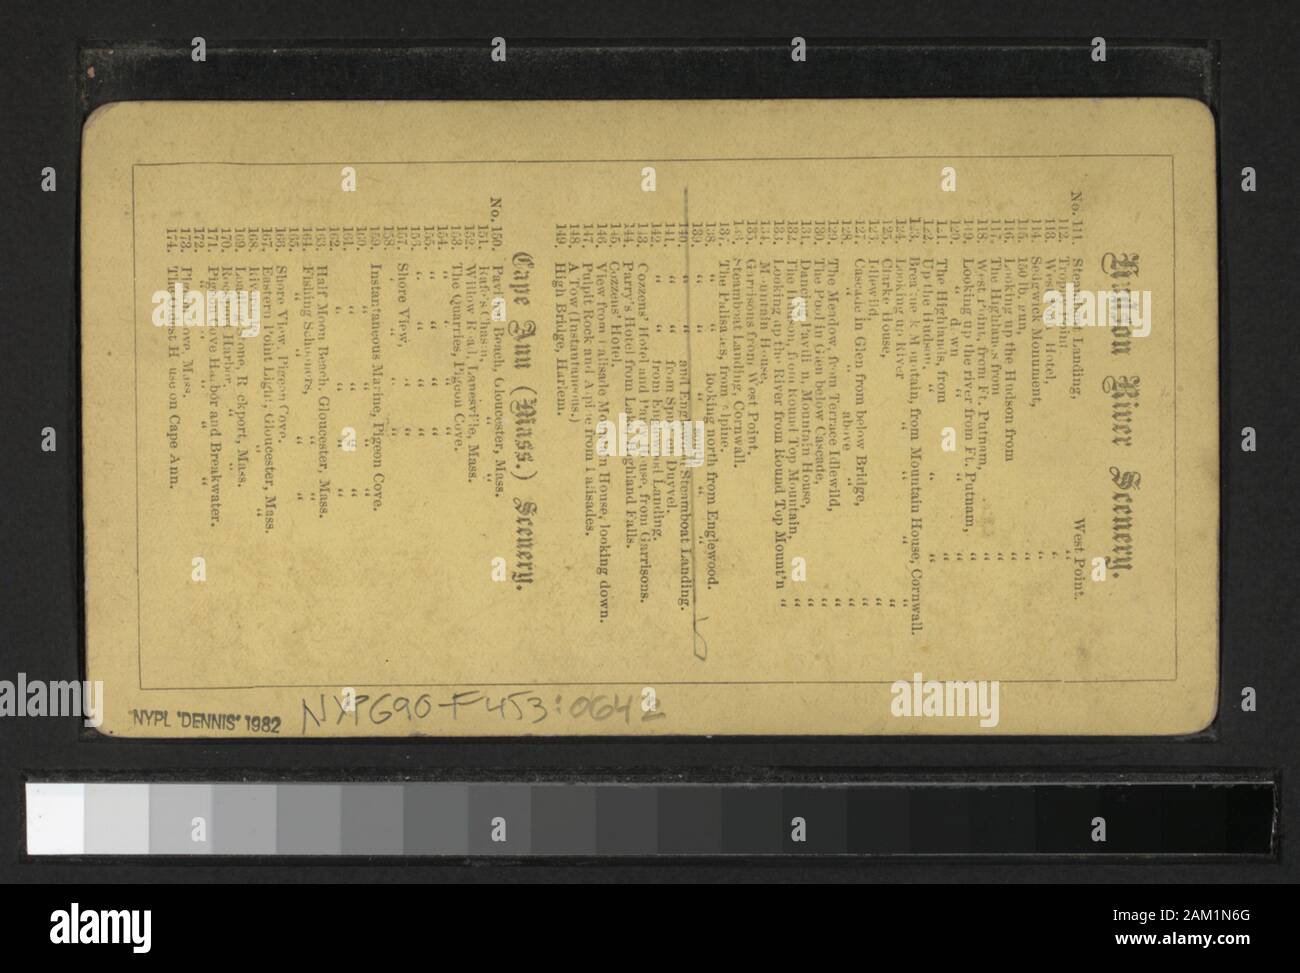 Hudson River Scenery.
No. 111. Steamboat Landing, West Point.
112. Trophy Point "
113. West Point Hotel, "
114. Sedgwick Monument, "
115. 150 lb. gun, "
116. Looking up the Hudson from "
117. The Highlands from "
118. West Point, from Ft. Putnam, "
119. Looking up the river from Ft. Putnam, "
120. " down " "
121. The Highlands, from "
122. Up the Hudson, " "
123. Breakneck Mountain, from Mountain House, Cornwall.
124. Looking up River " "
125. Clarke House, "
126. Idlewild, "
127. Cascade in Glen from below Bridge, "
128. " above " "
129. The Meadow, from Terrace Idlewild, "
130. The Pool in Glen below Cascade, "
131. Dancing Pavilion, Mountain House, "
132. The Hudson, from Round Top Mountain, "
133. Looking up the River from Round Top Mount'n "
134. Mountain House,
135. Garrisons from West Point.
136. Steamboat Landing, Cornwall.
137. The Palisades, from Alpine.
138. " " looking north from Englewood.
139. " " south " "
140. " " and Englewood Steamboat Landing.
141. " " from Spuyten Duyvel.
142. " " from Englewood Landing.
143. Cozzens' Hotel and Parry House, from Garrisons.
144. Parry's Hotel from Lake, Highland Falls.
145. Cozzens' Hotel.
146. View from Palisade Mountain House, looking down.
147. Pulpit Rock and Alpine from Palisades.
148. A Tow (Instantaneous.)
149. High Bridge, Harlem.
Cape Ann (Mass.) Scenery.
No. 150. Pavilion Beach, Gloucester, Mass.
151. Rafe's Chasm, " "
152. Willow Road, Lanesville, Mass.
153. The Quarries, Pigeon Cove.
154. " " "
155. " " "
156. " " "
157. Shore View, " "
158. " " "
159. Instantaneous Marine, Pigeon Cove.
160. " " "
161. " " "
162. " " "
163. Half Moon Beach, Gloucester, Mass.
164. Fishing Schooners, " "
165. " " "
166. Shore View, Pigeon Cove,
167. Eastern Point Light, Gloucester, Mass.
168. " "
169. Loaf, Stone, Rockport, Mass.
170. Rockport Harbor, " "
171. Pigeon Cove Harbor and Breakwater.
172. " " " "
173. Pigeon Cove, Mass.
174. The Oldest House on Cape Ann.
NYPL "DENNIS" 1982
NYPG90-F453:0642
alamy
Image ID: 2AM1N6G
www.alamy.com